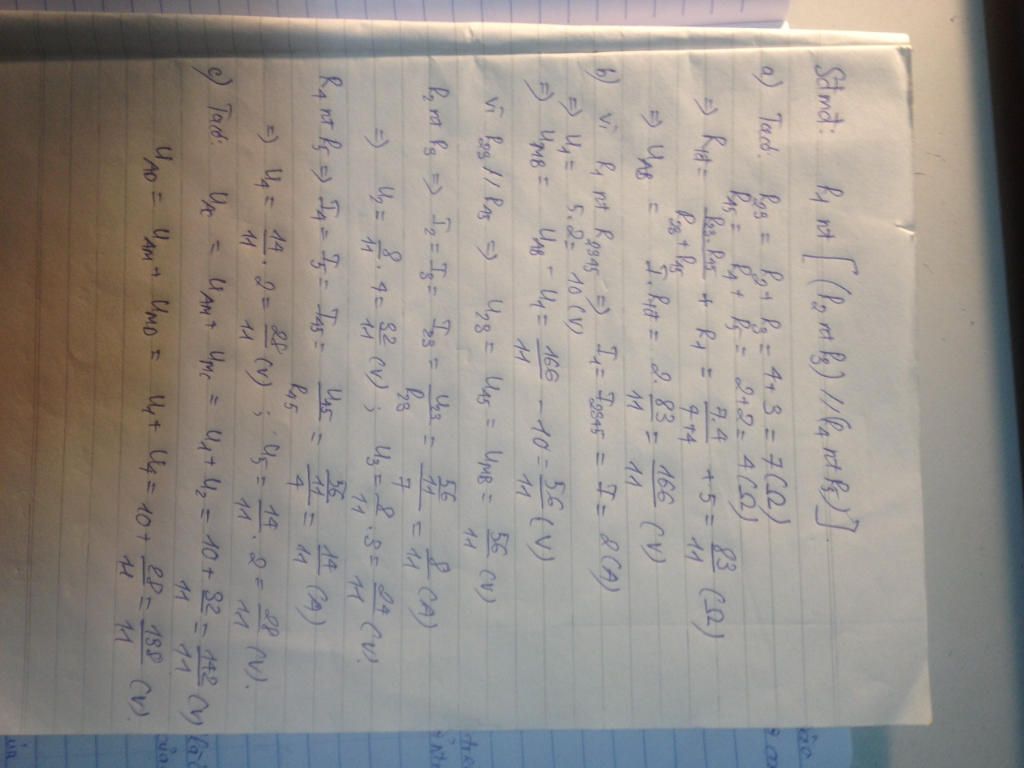 Sđmđ: R1 nt [(R2 nt R3) // (R4 nt R5)]
a) Ta có: R23 = R2 + R3 = 4 + 3 = 7 (Ω)
R45 = R4 + R5 = 2 + 2 = 4 (Ω)
=> RtĐ = R23.R45 / R23 + R45 + R1 = 7.4 / 7+4 + 5 = 83/11 (Ω)
=> UAB = I.RtĐ = 2. 83/11 = 166/11 (V)
b) Vì R1 nt R2345 => I1 = I2345 = I = 2 (A)
=> U1 = 5.2 = 10 (V)
=> UMB = UAB - U1 = 166/11 - 10 = 56/11 (V)
Vì R23 // R45 => U23 = U45 = UMB = 56/11 (V)
R2 nt R3 => I2 = I3 = I23 = U23/R23 = 56/11 / 7 = 8/11 (A)
=> U2 = 8/11 . 4 = 32/11 (V) ; U3 = 8/11 . 3 = 24/11 (V).
R4 nt R5 => I4 = I5 = I45 = U45/R45 = 56/11 / 4 = 14/11 (A)
=> U4 = 14/11 . 2 = 28/11 (V) ; U5 = 14/11 . 2 = 28/11 (V).
c) Ta có: UAC = UAM + UMC = U1 + U2 = 10 + 32/11 = 142/11 (V)
UAD = UAM + UMD = U1 + U4 = 10 + 28/11 = 138/11 (V).